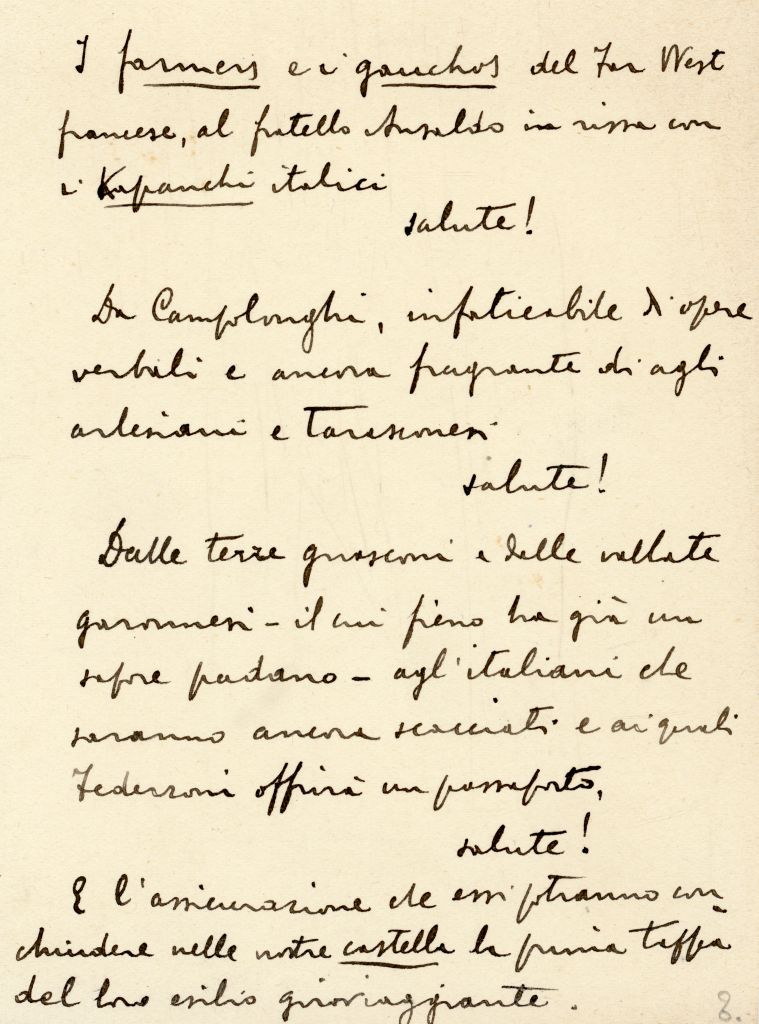 I farmers e i gauchos del Far West
francese, al fratello Ansaldo in rissa con
i Kapanchi italici
salute!
Da Campolonghi, infaticabile di opere
verbali e ancora fragrante di agli
arlesiani e tarasconesi
salute!
Dalle terre guasconi e dalle vallate
garonnesi - il cui fieno ha già un
sapore padano - agl'italiani che
saranno ancora scacciati e ai quali
Federzoni offrirà un passaporto,
salute!
E l'assicurazione che essi potranno con-
chiudere nelle nostre castella la prima tappa
del loro esilio giroviaggiante.